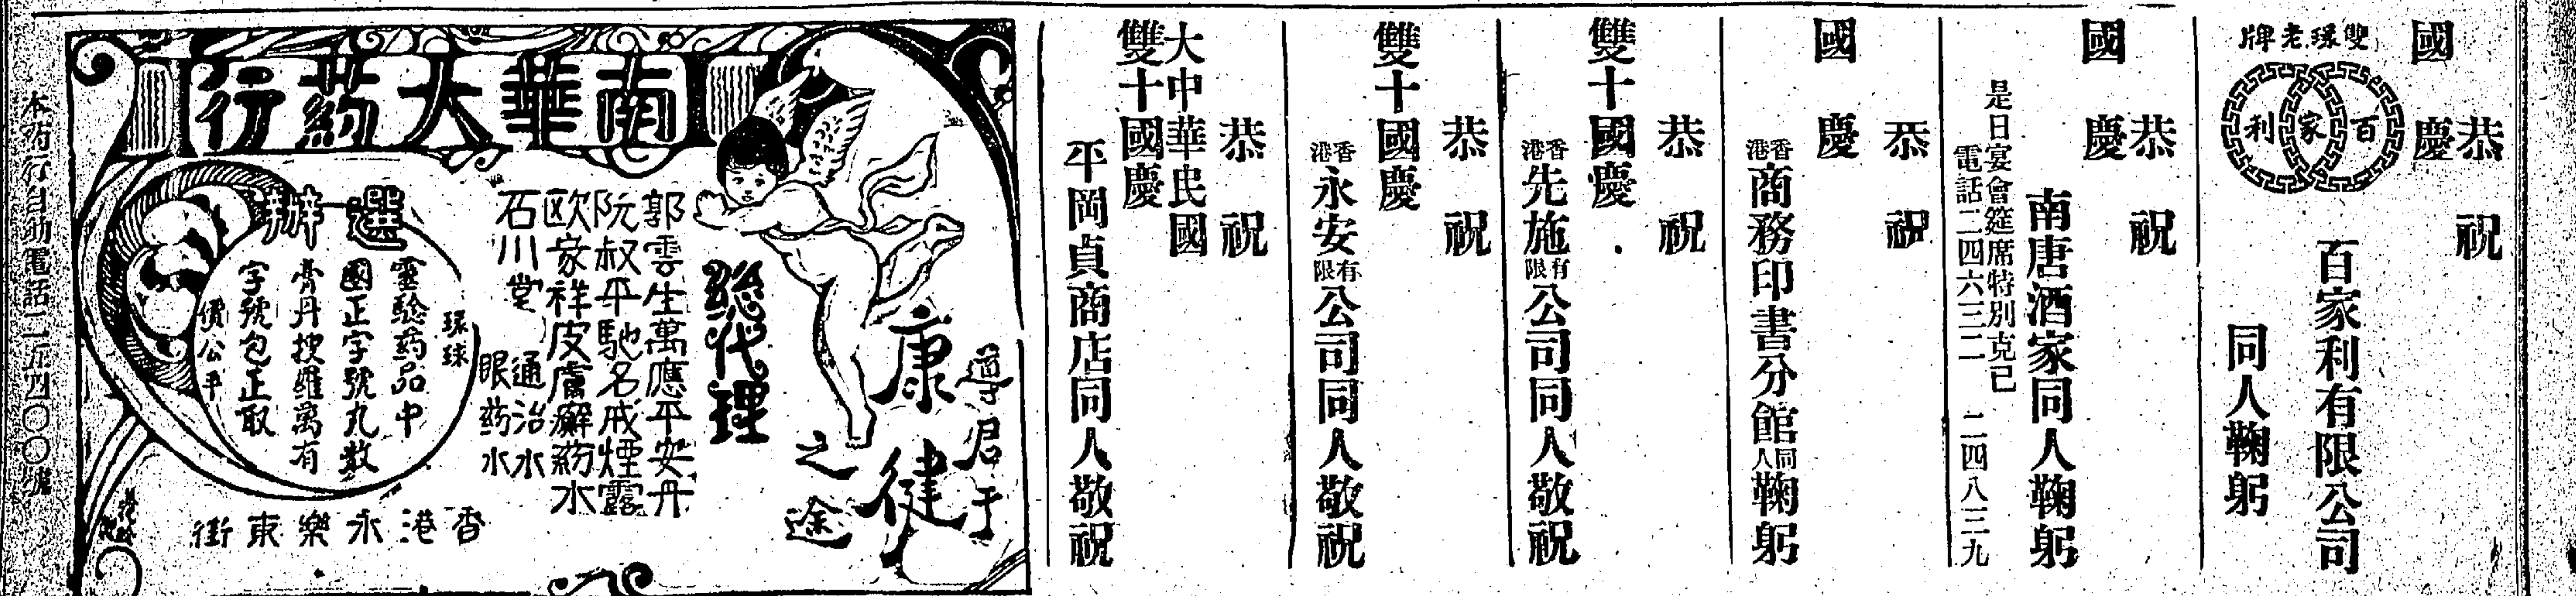 恭祝
國慶
雙環老牌
百家利
百家利有限公司
同人鞠躬
恭祝
國慶
南唐酒家同人鞠躬
是日宴會筵席特別克己
電話二四六三二 二四八三九
恭祝
國慶
香港商務印書分館同人鞠躬
恭祝
雙十國慶
香港先施有限公司同人敬祝
恭祝
雙十國慶
香港永安有限公司同人敬祝
恭祝
大中華民國
雙十國慶
平岡貞商店同人敬祝
南華大药行
導君于
康健
之途
總代理
郭雲生萬應平安丹
阮叔平馳名戒煙露
欧家祥皮膚癬药水
石川堂
通治水
眼药水
選辦
環球
靈驗药品中
國正字號丸散
膏丹搜羅萬有
字號包正取
價公平
香港永樂東街
本药行自動電話二
四〇〇號